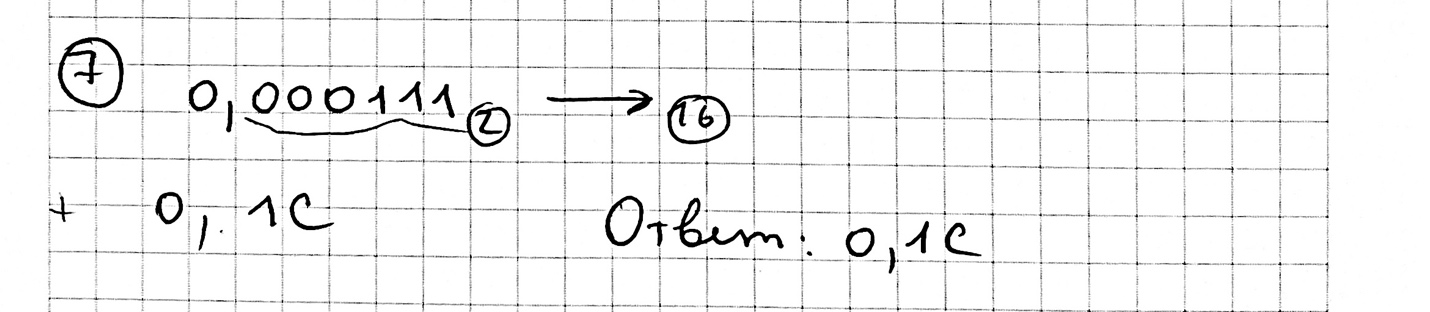 7 0,000111 2 → 16
+ 0,1C Ответ: 0,1C